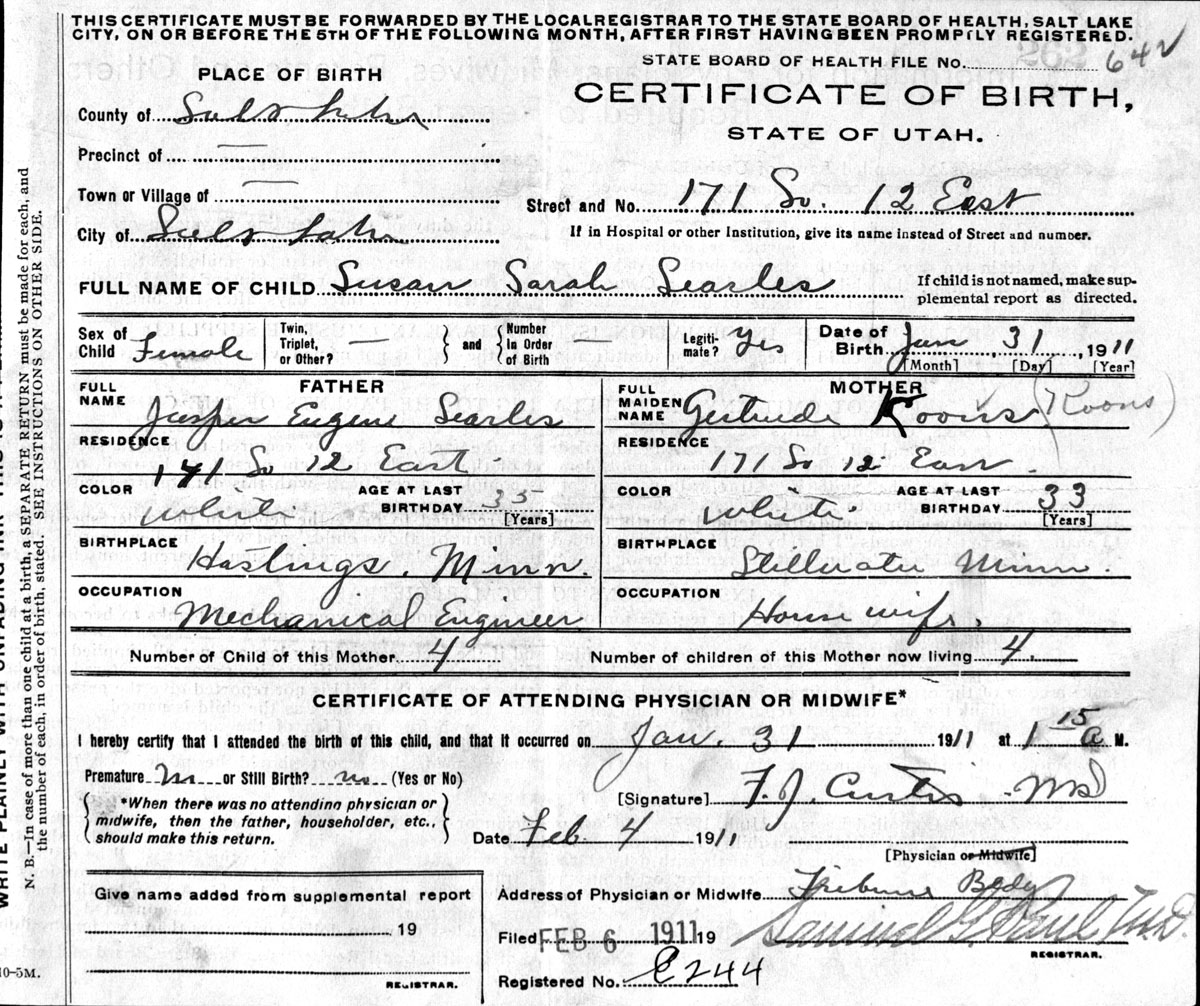 THIS CERTIFICATE MUST BE FORWARDED BY THE LOCAL REGISTRAR TO THE STATE BOARD OF HEALTH, SALT LAKE
CITY, ON OR BEFORE THE 5TH OF THE FOLLOWING MONTH, AFTER FIRST HAVING BEEN PROMPTLY REGISTERED.
STATE BOARD OF HEALTH FILE No. 64
PLACE OF BIRTH
CERTIFICATE OF BIRTH,
STATE OF UTAH.
County of Salt Lake
Precinct of —
Town or Village of —
Street and No. 171 So. 12 East
City of Salt Lake
If in Hospital or other Institution, give its name instead of Street and number.
FULL NAME OF CHILD Susan Sarah Searles
If child is not named, make sup-
plemental report as directed.
Sex of Child Female
Twin, Triplet, or Other? —
and
Number In Order of Birth —
Legiti-mate? Yes
Date of Birth Jan 31, 1911
[Month] [Day] [Year]
FATHER
FULL NAME Jasper Eugene Searles
RESIDENCE
171 So 12 East
COLOR White
AGE AT LAST BIRTHDAY 35
[Years]
BIRTHPLACE Hastings, Minn.
OCCUPATION
Mechanical Engineer
MOTHER
FULL MAIDEN NAME Gertrude Koons (Koons)
RESIDENCE
171 So 12 East
COLOR White
AGE AT LAST BIRTHDAY 33
[Years]
BIRTHPLACE Stillwater Minn.
OCCUPATION
House wife.
Number of Child of this Mother 4
Number of children of this Mother now living 4
CERTIFICATE OF ATTENDING PHYSICIAN OR MIDWIFE*
I hereby certify that I attended the birth of this child, and that it occurred on Jan. 31 1911 at 1 15 A M.
Premature no or Still Birth? no (Yes or No)
*When there was no attending physician or
midwife, then the father, householder, etc.,
should make this return.
[Signature] F. J. Curtis MD
Date Feb 4 1911
[Physician or Midwife]
Give name added from supplemental report
19
REGISTRAR.
Address of Physician or Midwife Tribune Bldg
Filed FEB 6 1911 19 Samuel G. Paul M.D.
REGISTRAR.
Registered No. E244
N. B.—In case of more than one child at a birth, a SEPARATE RETURN must be made for each, and
the number of each, in order of birth, stated. SEE INSTRUCTIONS ON OTHER SIDE.
WRITE PLAINLY WITH UNFADING INK
10-5M.